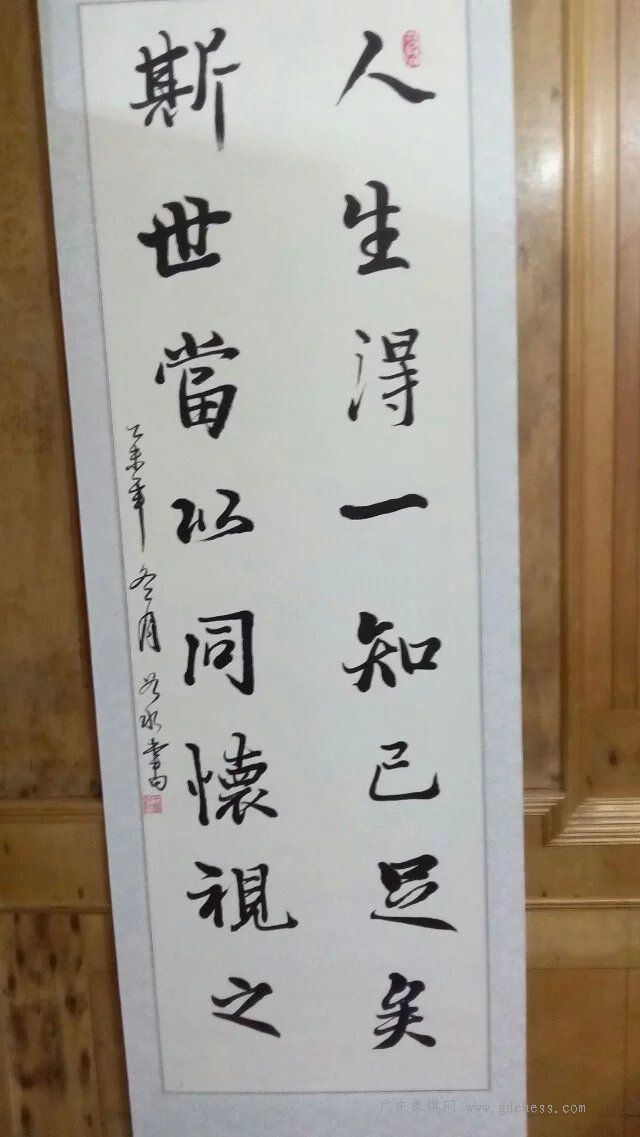 人生得一知己足矣
斯世當以同懷視之
乙未年冬月若水書
广东象棋网 www.gdchess.com